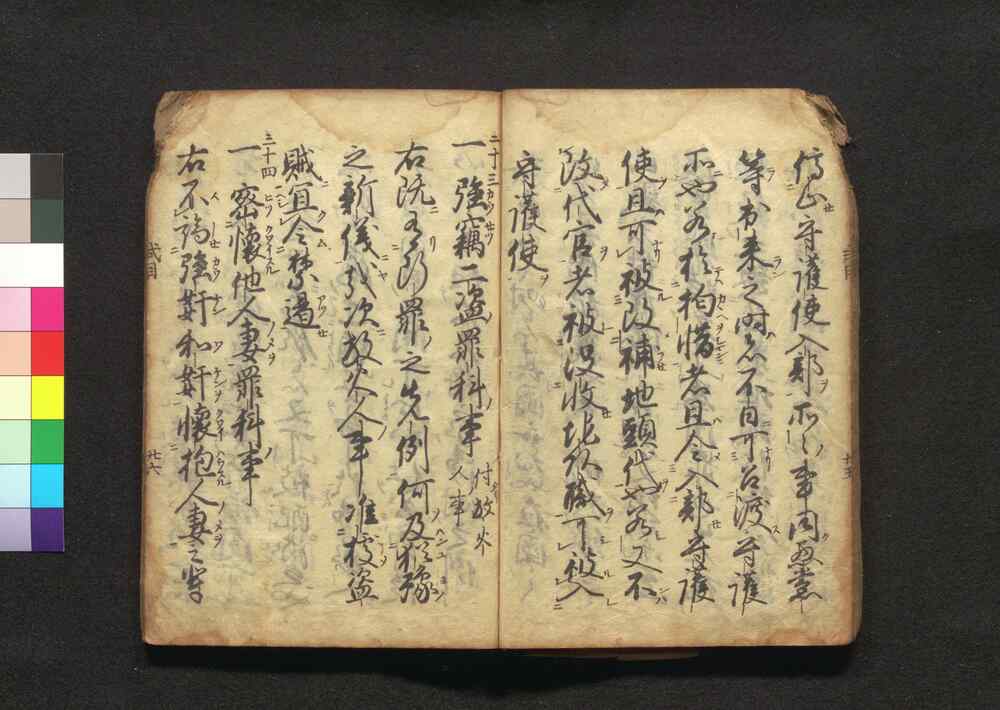 停止守護使入部所々事同悪黨
等出来之時者不日可召渡守護
所也若於拘惜者且令入部守護
使且可被改補地頭代也若又不
改代官者被没收地頭職可被入
守護使
三十三
一 強竊二盗罪科事 付放火
人事
右既有断罪之先例何及猶豫
之新儀哉次放火人事准據盗
賊宜令禁遏
三十四
一 密懐他人妻罪科事
右不論強姧和姧懐抱人妻之輩
式目 廿六